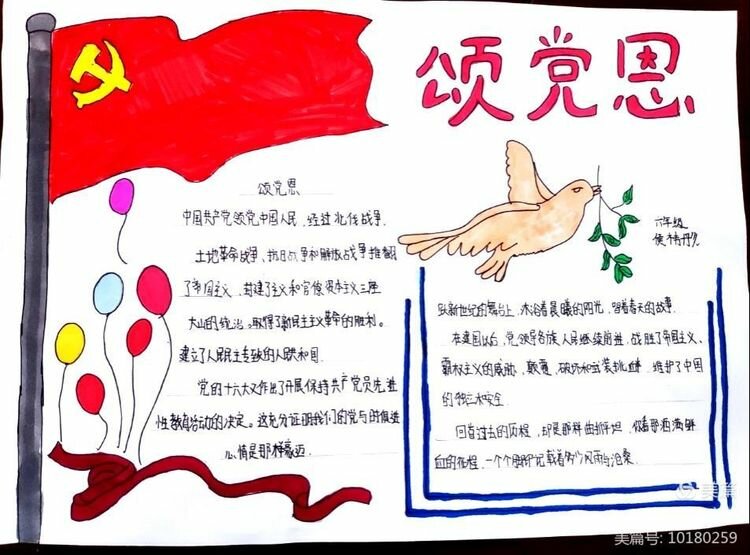 颂党恩
颂党恩
中国共产党领党中国人民，经过北伐战争、
土地革命战争、抗日战争和解放战争推翻
了帝国主义，封建了主义和官僚资本主义三座
大山的统治。取得了新民主主义革命的胜利。
建立了人民民主专政的人民共和国
党的十六大作出了开展保持共产党员先进
性教育活动的决定。这充分证明我们的党与时俱进
心情是那样豪迈.
六年级
侯
新世纪的舞台上，沐浴着晨曦的阳光，踏着春天的故事.
在建国以后，党领导各族人民继续前进，战胜了帝国主义、
霸权主义的威胁、颠覆、破坏和武装挑衅，维护了中国
的独立和安全
回首过去的历程，却是那样曲折坦，你看那洒满鲜
血的征程，一个个脚印记载着多少风雨与沧桑.
美篇
美篇号: 10180259